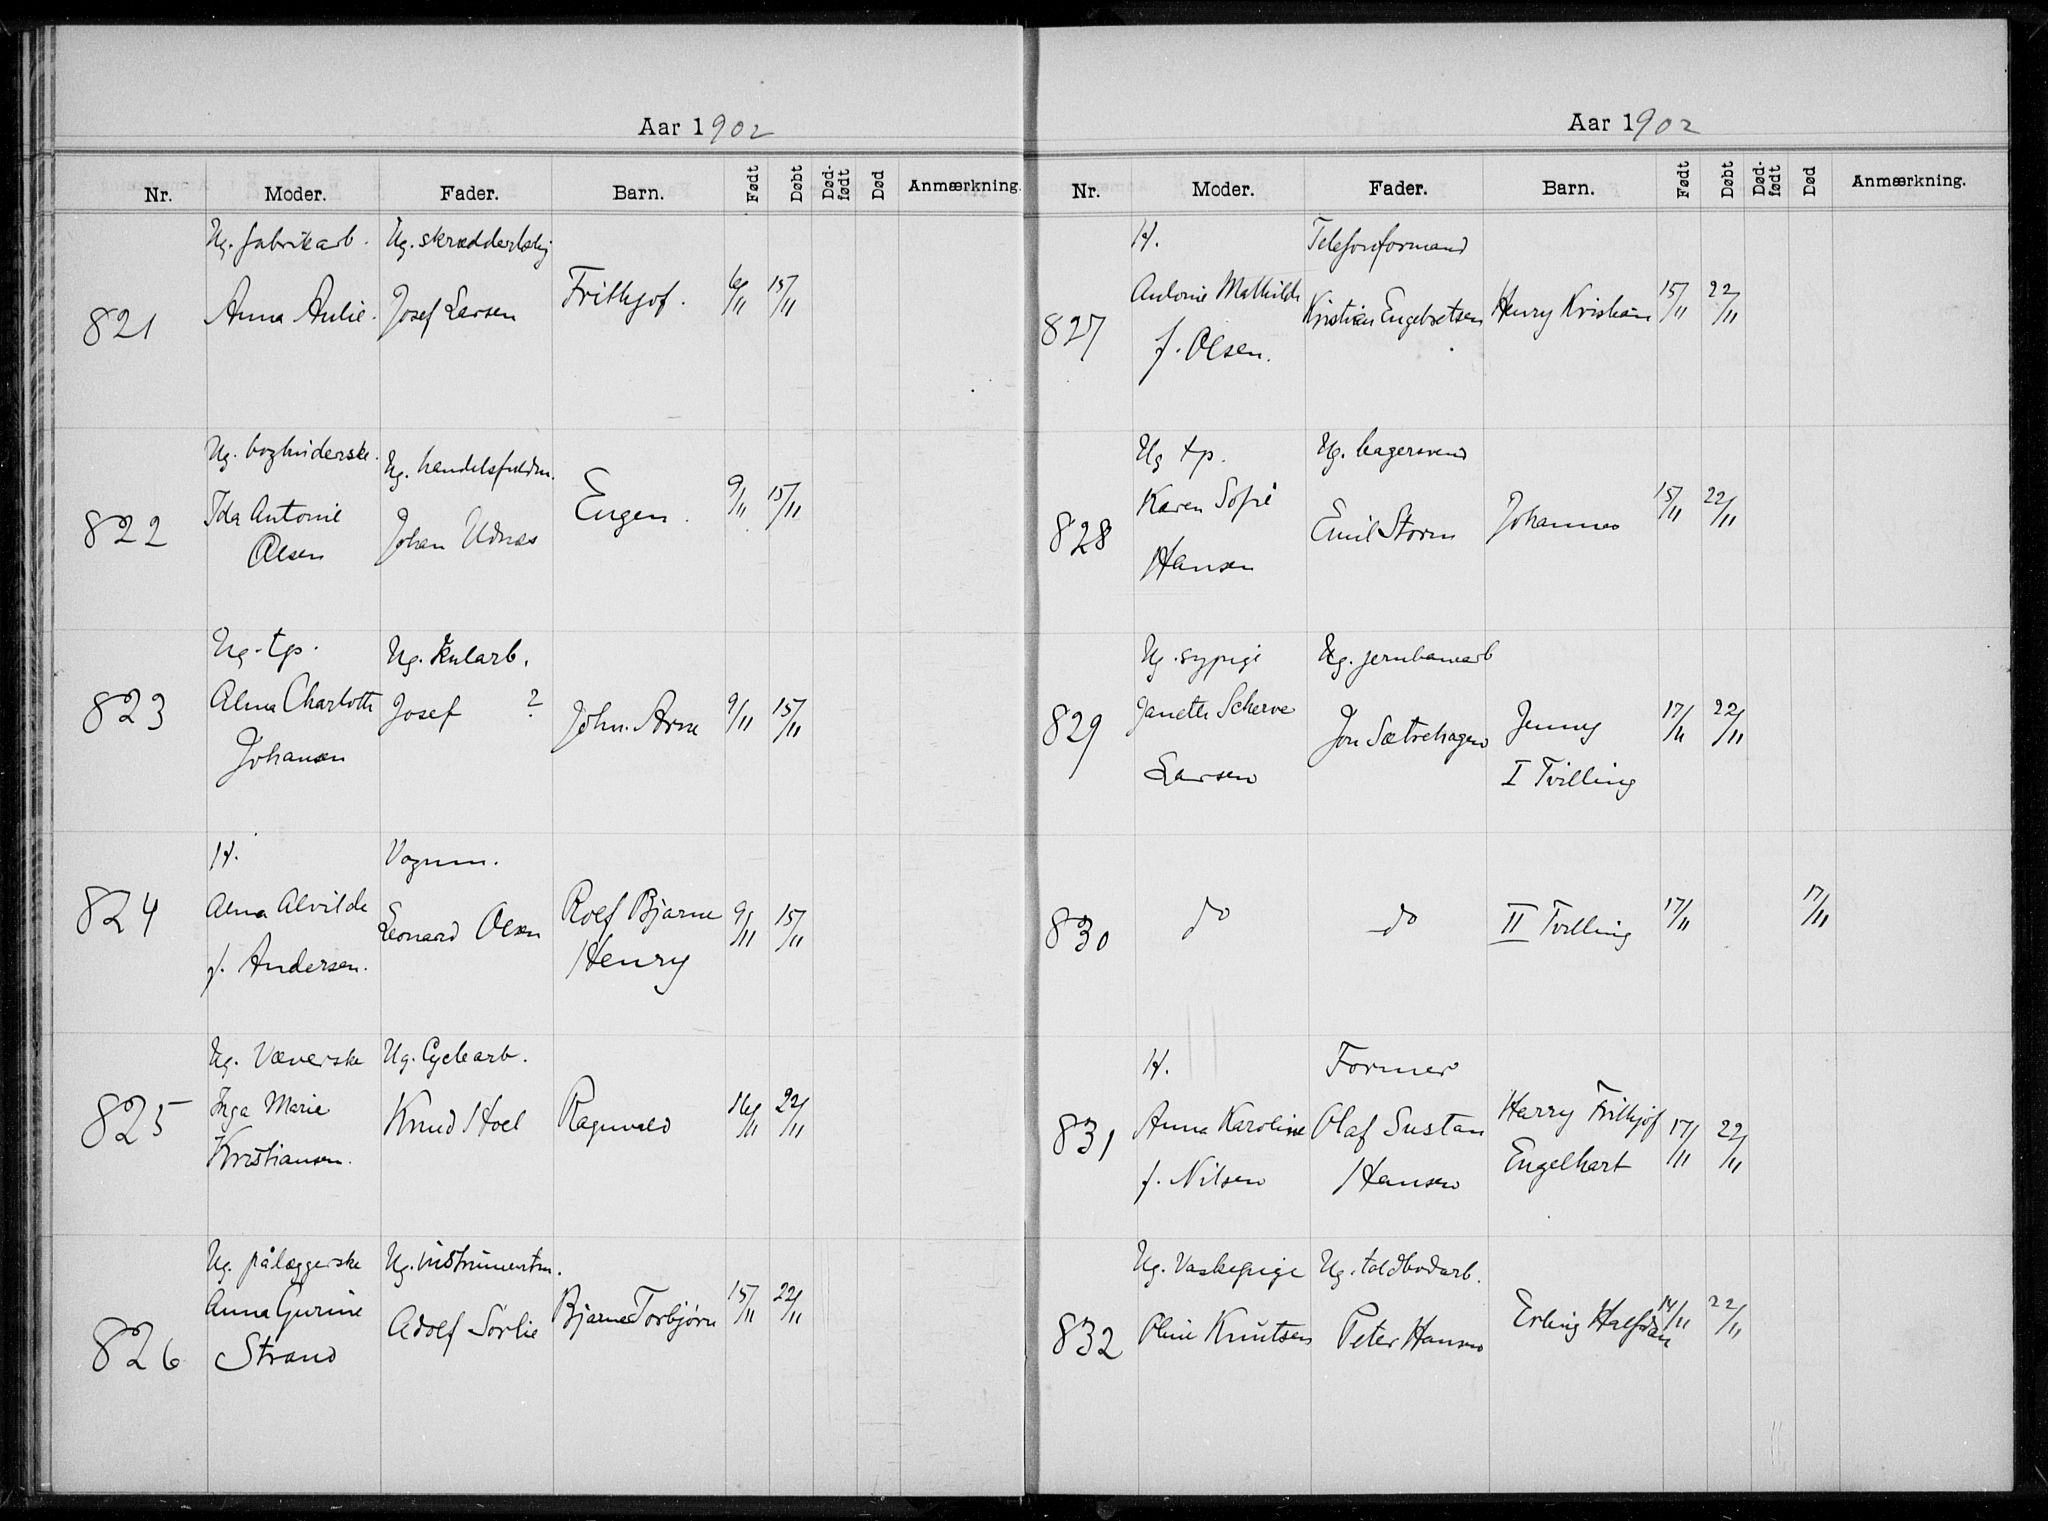 Aar 1902
Nr. Moder. Fader. Barn. Født Døbt Dødfødt Død Anmærkning.
821
Ug. fabrikarb.
Anna Aulie.
Ug. skrædder
Josef Larsen
Frithjof.
6/11 15/11
822
Ug. bogbinderske.
Ida Antonie
Olsen
Ug. handelsfuldm.
Johan Udnæs
Eugen.
9/11 15/11
823
Ug. tp.
Alma Charlotte
Johansen
Ug. kularb.
Josef ?
John. Arne
9/11 15/11
824
H.
Alma Alvilde
f. Andersen.
Vognm.
Leonard Olsen
Rolf Bjarne
Henry
9/11 15/11
825
Ug. Væverske
Inga Marie
Kristiansen.
Ug. Cyclearb.
Knud Hoel
Ragnvald
16/11 22/11
826
Ug. pålæggerske
Anna Gurine
Strand
Ug. instrumentm.
Adolf Sørlie
Bjarne Torbjørn
15/11 22/11
Aar 1902
Nr. Moder. Fader. Barn. Født Døbt Dødfødt Død Anmærkning.
827
H.
Antonie Mathilde
f. Olsen.
Telefonformand
Kristian Engebretsen
Henry Kristian
15/11 22/11
828
Ug tp.
Karen Sofie
Hansen
Ug. bagersvend
Emil Storm
Johannes
15/11 22/11
829
Ug. sypige
Janette Scherve
Larsen
Ug. jernbanearb
Jon Sætrehagen
Jenny
I Tvilling
17/11 22/11
830
do
do
II Tvilling
17/11 17/11
831
H.
Anna Karoline
f. Nilsen
Former
Olaf Sustan
Hansen
Harry Frithjof
Engelhart
17/11 22/11
832
Ug. Vaskepige
Oline Knutsen
Ug. toldbodarb.
Peter Hansen
Erling Halfdan
14/11 22/11